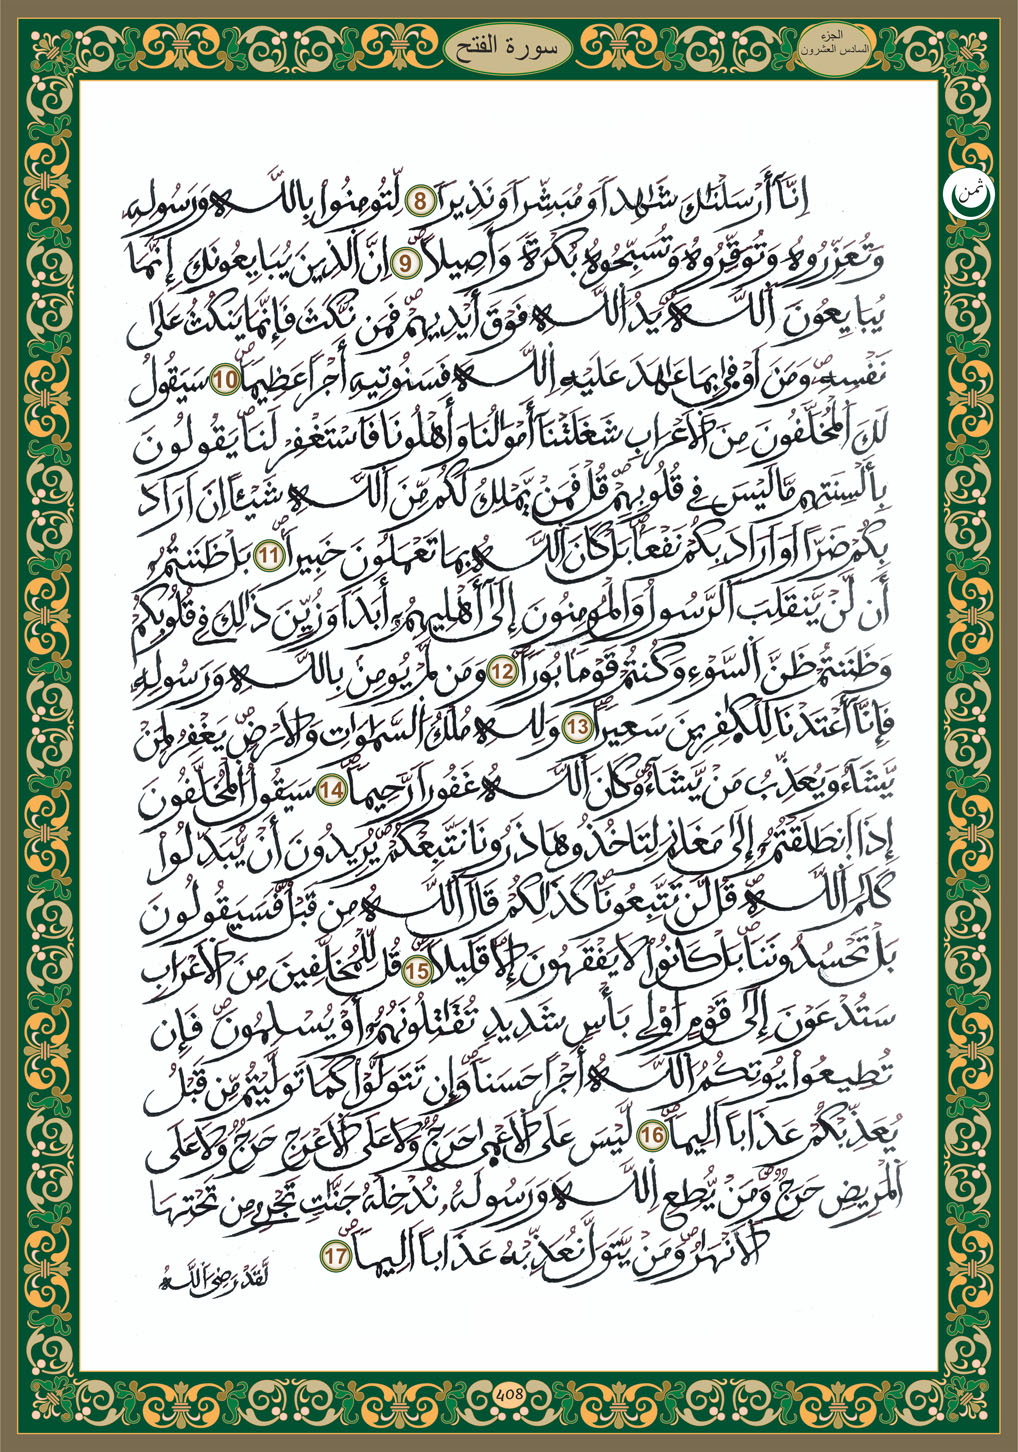 سورة الفتح
الجزء
السادس العشرون
ثمن
إِنَّآ أَرْسَلْنَٰكَ شَٰهِداً وَمُبَشِّراً وَنَذِيراً 8 لِّتُومِنُوا بِاللَّهِ وَرَسُولِهِ
وَتُعَزِّرُوهُ وَتُوَقِّرُوهُ وَتُسَبِّحُوهُ بُكْرَةً وَأَصِيلاً 9 اِنَّ ٱلذِينَ يُبَايِعُونَكَ إِنَّمَا
يُبَايِعُونَ ٱللَّهَ يَدُ ٱللَّهِ فَوْقَ أَيْدِيهِمْ فَمَن نَّكَثَ فَإِنَّمَا يَنكُثُ عَلَىٰ
نَفْسِهِ وَمَنَ اَوْفَىٰ بِمَا عَٰهَدَ عَلَيْهِ اِللَّهَ فَسَنُوتِيهِ أَجْراً عَظِيماً 10 سَيَقُولُ
لَكَ ٱلْمُخَلَّفُونَ مِنَ ٱلَاعْرَابِ شَغَلَتْنَآ أَمْوَٰلُنَا وَأَهْلُونَا فَاسْتَغْفِرْ لَنَا يَقُولُونَ
بِأَلْسِنَتِهِم مَّا لَيْسَ فِي قُلُوبِهِمْ قُلْ فَمَنْ يَّمْلِكُ لَكُم مِّنَ ٱللَّهِ شَيْـٔاً اِنَ اَرَادَ
بِكُمْ ضَرّاً اَوَ اَرَادَ بِكُمْ نَفْعاً بَلْ كَانَ ٱللَّهُ بِمَا تَعْمَلُونَ خَبِيراً 11 بَلْ ظَنَنتُمُ
أَن لَّنْ يَّنقَلِبَ ٱلرَّسُولُ وَالْمُومِنُونَ إِلَىٰٓ أَهْلِيهِمُ أَبَداً وَزُيِّنَ ذَٰلِكَ فِي قُلُوبِكُمْ
وَظَنَنتُمْ ظَنَّ ٱلسَّوْءِ وَكُنتُمْ قَوْماً بُوراً 12 وَمَن لَّمْ يُومِنْ بِاللَّهِ وَرَسُولِهِ
فَإِنَّآ أَعْتَدْنَا لِلْكَٰفِرِينَ سَعِيراً 13 وَلِلهِ مُلْكُ ٱلسَّمَٰوَٰتِ وَالَارْضِ يَغْفِرُ لِمَنْ
يَّشَآءُ وَيُعَذِّبُ مَنْ يَّشَآءُ وَكَانَ ٱللَّهُ غَفُوراً رَّحِيماً 14 سَيَقُولُ ٱلْمُخَلَّفُونَ
إِذَا اَنطَلَقْتُمُ إِلَىٰ مَغَانِمَ لِتَاخُذُوهَا ذَرُونَا نَتَّبِعْكُمْ يُرِيدُونَ أَنْ يُّبَدِّلُوا
كَلَٰمَ ٱللَّهِ قُل لَّن تَتَّبِعُونَا كَذَٰلِكُمْ قَالَ ٱللَّهُ مِن قَبْلُ فَسَيَقُولُونَ
بَلْ تَحْسُدُونَنَا بَلْ كَانُوا لَا يَفْقَهُونَ إِلَّا قَلِيلاً 15 قُل لِّلْمُخَلَّفِينَ مِنَ ٱلَاعْرَابِ
سَتُدْعَوْنَ إِلَىٰ قَوْمٍ اُوْلِي بَأْسٍ شَدِيدٍ تُقَٰتِلُونَهُمُ أَوْ يُسْلِمُونَ فَإِن
تُطِيعُوا يُوتِكُمُ ٱللَّهُ أَجْراً حَسَناً وَإِن تَتَوَلَّوْا كَمَا تَوَلَّيْتُم مِّن قَبْلُ
يُعَذِّبْكُمْ عَذَاباً اَلِيماً 16 لَّيْسَ عَلَى ٱلَاعْمَىٰ حَرَجٌ وَلَا عَلَى ٱلَاعْرَجِ حَرَجٌ وَلَا عَلَى
ٱلْمَرِيضِ حَرَجٌ وَمَنْ يُّطِعِ اِللَّهَ وَرَسُولَهُ نُدْخِلْهُ جَنَّٰتٍ تَجْرِي مِن تَحْتِهَا
ٱلَانْهَٰرُ وَمَنْ يَّتَوَلَّ نُعَذِّبْهُ عَذَاباً اَلِيماً 17
لَّقَدْ رَضِيَ ٱللَّهُ
408